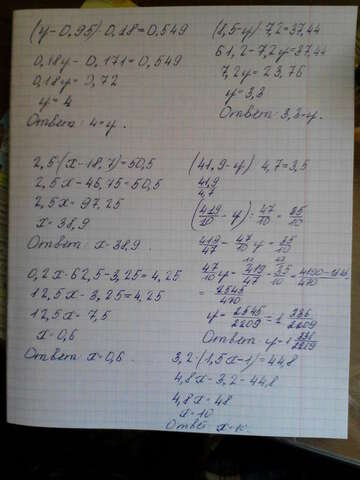 (y-0,95)·0,18=0,549
0,18y-0,171=0,549
0,18y=0,72
y=4
Ответ: 4=y.
(8,5-y)·7,2=37,44
61,2-7,2y=37,44
7,2y=23,76
y=3,3
Ответ: 3,3=y.
2,5·(x-18,7)=50,5
2,5x-46,75=50,5
2,5x=97,25
x=38,9
Ответ: x=38,9.
(41,9-y)·4,7=3,5
41,9
4,7
(419/10-y)·47/10=35/10
419/47-47/10y=35/10
47/10y=419/47-35/10=4190-1645/470
=2545/470
y=2545/2209=1 336/2209
Ответ: y=1 336/2209
0,2x·62,5-3,25=4,25
12,5x-3,25=4,25
12,5x=7,5
x=0,6
Ответ: x=0,6.
3,2·(1,5x-1)=44,8
4,8x-3,2=44,8
4,8x=48
x=10
Ответ: x=10.